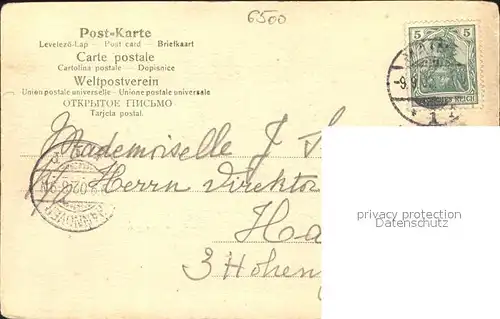 6500
Post-Karte
Levelező-Lap — Post card — Briefkaart
Carte postale
Cartolina postale — Dopisnice
Weltpostverein
Union postale universelle — Unione postale universale
ОТКРЫТОЕ ПИСЬМО
Tarjeta postal.
5 5
REICH
Mademoiselle J
Herrn Direktor
Ha
3 Hohen
HANNOVER
privacy protection
Datenschutz